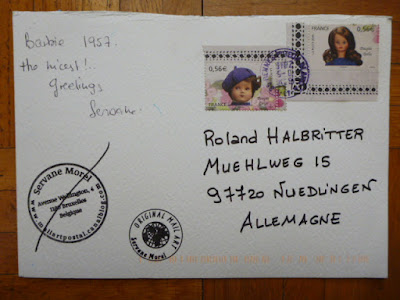 Barbie 1957.
the nicest!
Greetings
Servane
FRANCE
0,56€
FRANCE
0,56€
Roland HALBRITTER
MUEHLWEG 15
97720 NUEDLINGEN
ALLEMAGNE
Servane Morel
Avenue Washington, 4
Bruxelles
Belgique
ORIGINAL MAIL ART
Servane Morel